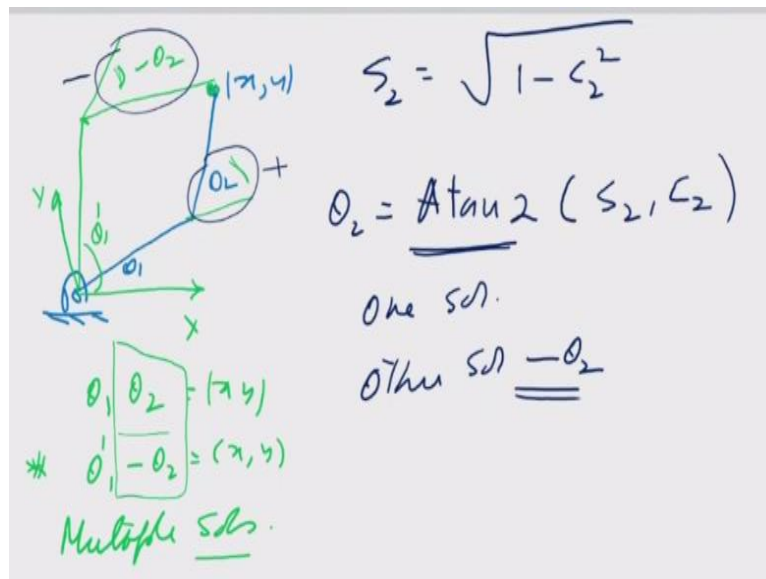 − θ₂
−
(x, y)
θ₂
+
Y
θ₁'
θ₁
X
θ₁ θ₂ = (x y)
* θ₁' − θ₂ = (x, y)
Multiple Sols.
S₂ = √1 − C₂²
θ₂ = Atan 2 ( S₂, C₂ )
One sol.
Other sol − θ₂